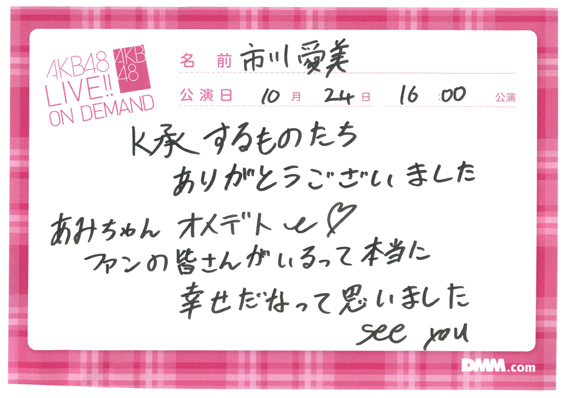 AKB48
LIVE!!
ON DEMAND
AKB
48
名 前 市川愛美
公演日 10月 24日 16:00 公演
K承するものたち
ありがとうございました
あみちゃん オメデト♡
ファンの皆さんがいるって本当に
幸せだなって思いました
see you
DMM.com